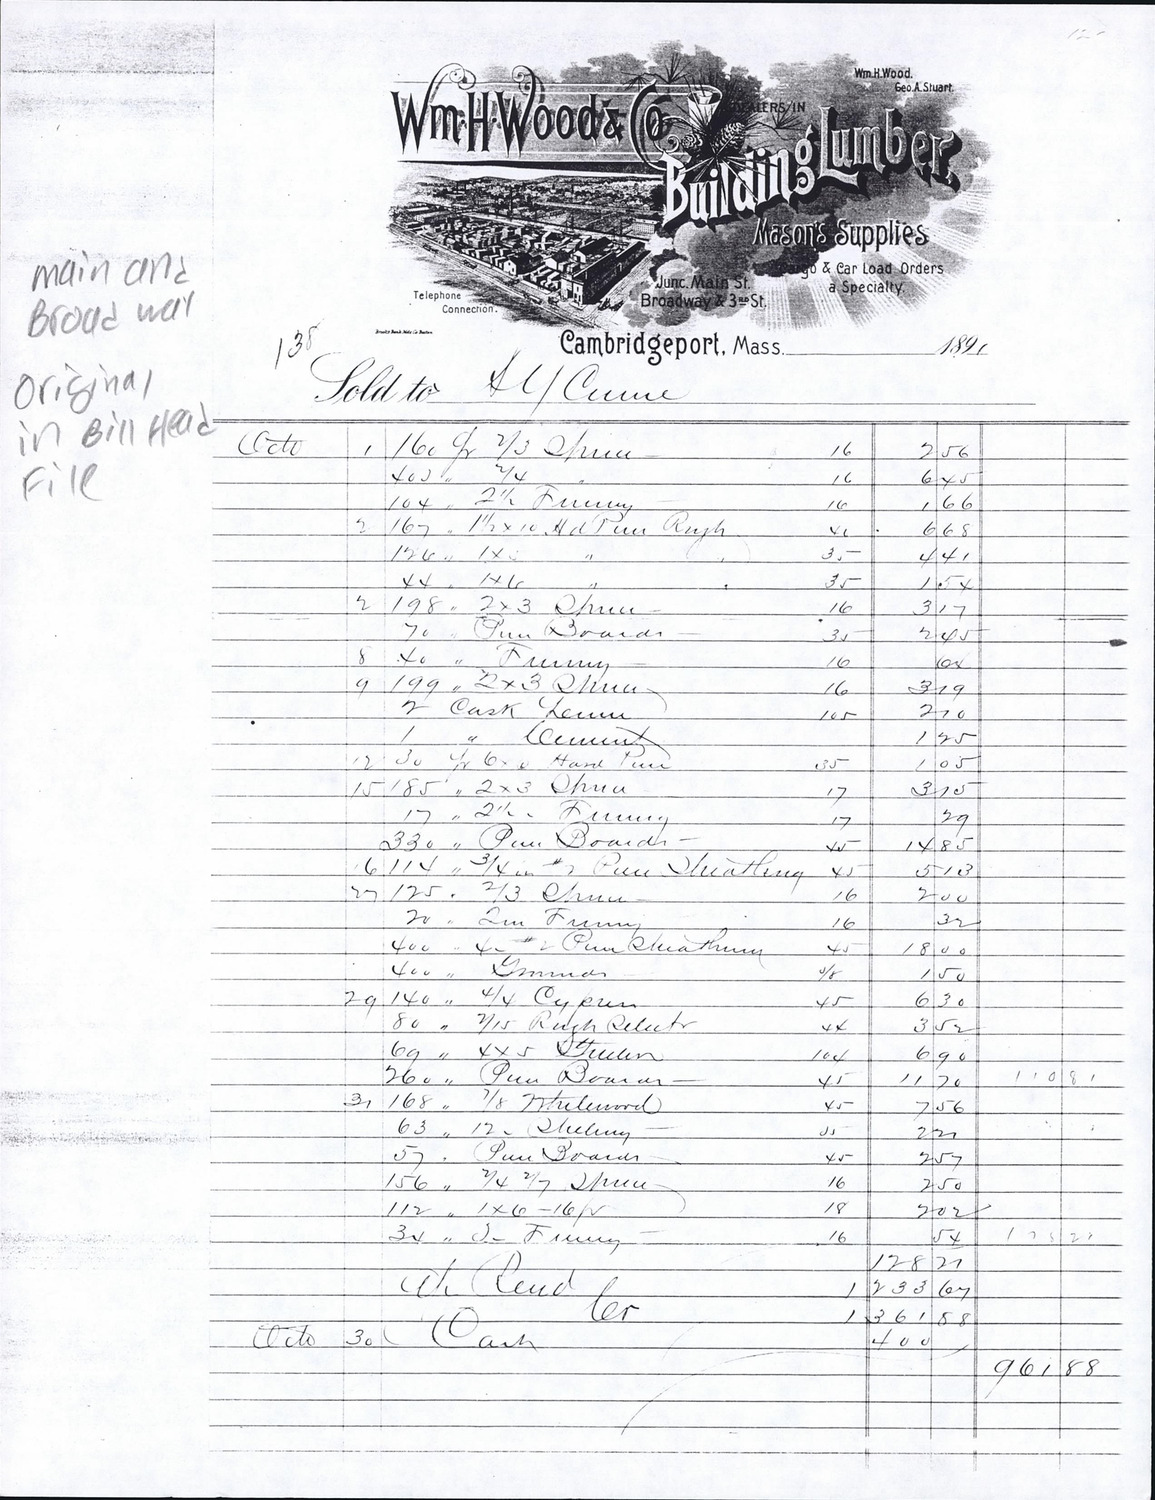 Wm. H. Wood.
Geo. A. Stuart.
Wm. H. Wood & Co
DEALERS IN
Building Lumber
Mason's Supplies
Cargo & Car Load Orders
a Specialty.
Junc. Main St.
Broadway & 3rd St.
Telephone
Connection.
main and
Broad way
Original
in Bill Head
File
138
Cambridgeport, Mass. 1891
Sold to
Octo 1 160 2/3 Spruce 16 2 56
403 " 2/4 " 16 6 45
104 " 2 1/2 Furring 16 1 66
2 167 " 1 1/2 x 10 Hd Pine Rough 40 6 68
126 " " 35 4 41
44 " 1x6 " 35 1 54
2 198 " 2x3 Spruce 16 3 17
70 " Pine Boards 35 2 45
8 40 " Furring 16 64
9 199 " 2x3 Spruce 16 3 19
2 Cask Lime 105 2 10
1 " Cement 1 25
12 30 Hard Pine 35 1 05
15 185 " 2x3 Spruce 17 3 15
17 " Furring 17 29
330 " Pine Boards 45 14 85
16 114 " 3/4 in #2 Pine Sheathing 45 5 13
27 125 " 2/3 Spruce 16 2 00
20 " 2in Furring 16 32
400 " #2 Pine Sheathing 45 18 00
400 " Grounds 3/8 1 50
29 140 " 4/4 Cypress 45 6 30
80 " Rough Select 44 3 52
69 " 4x5 104 6 90
260 " Pine Boards 45 11 70 110 81
31 168 " 7/8 Whitewood 45 7 56
63 " 12 35 2 21
57 " Pine Boards 45 2 57
156 " 2/4 2/7 Spruce 16 2 50
112 " 1x6-16 18 2 02
34 " Furring 16 54 128 21
128 21
1 233 67
Cr 1 361 88
Octo 30 Cash 400
961 88